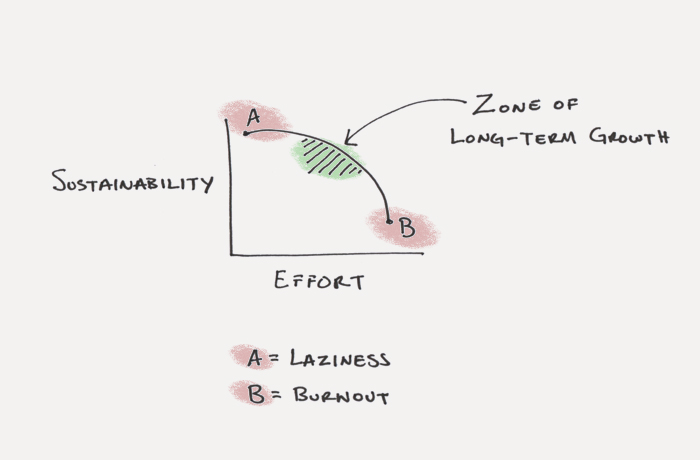 A
ZONE OF
LONG-TERM GROWTH
SUSTAINABILITY
B
EFFORT
A = LAZINESS
B = BURNOUT